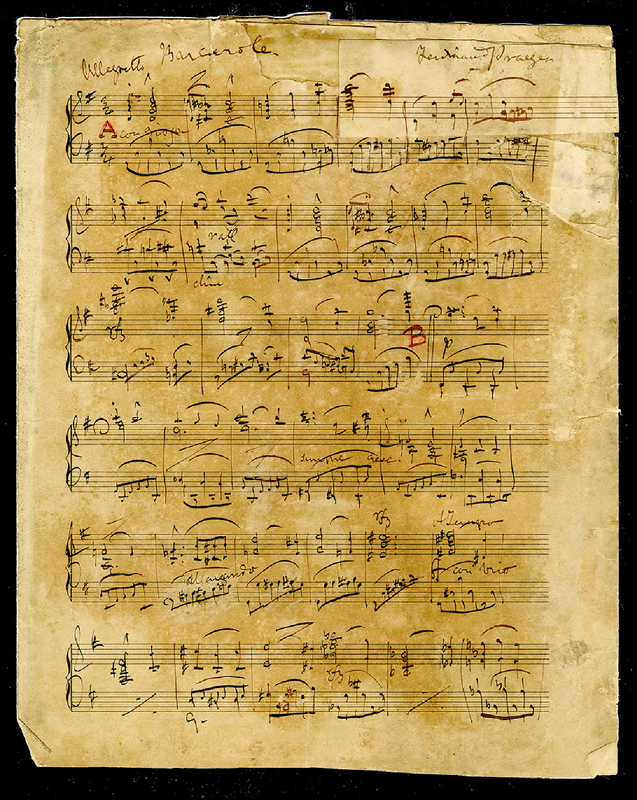 Allegretto Barcarole. Ferdinand Praeger
A con gioja
rall
dim
B p
sempre cresc.
rallentando a Tempo
con brio